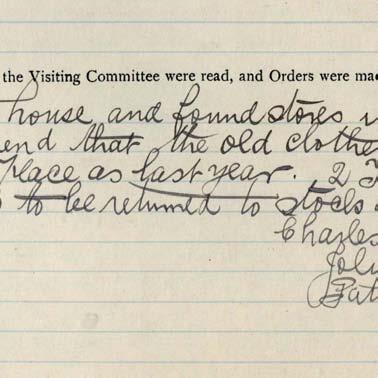 the Visiting Committee were read, and Orders were mad
house and found stores
end that the old clothe
Place as last year. 2
to be returned to stocks
Charles
John
Pat